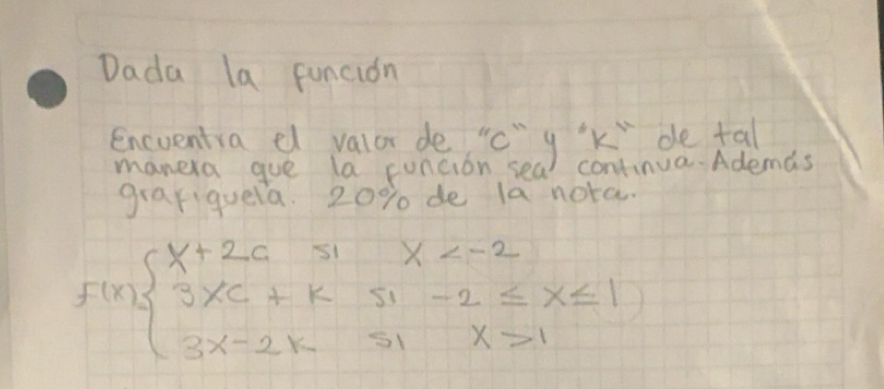 Dada la función
Encuentra el valor de "c" y "K" de tal
manera que la función sea continua. Además
grafiquela. 20% de la nota.
x + 2c si x < -2
f(x) { 3xc + K si -2 ≤ x ≤ 1
3x - 2K si x > 1